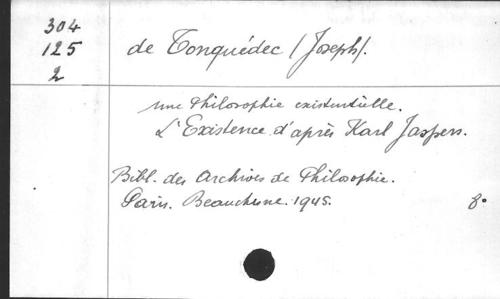 304
125
2
de Tonquédec (Joseph).
une Philosophie existentielle.
L'Existence d'après Karl Jaspers.
Bibl. des Archives de Philosophie.
Paris. Beauchesne. 1945. 8°